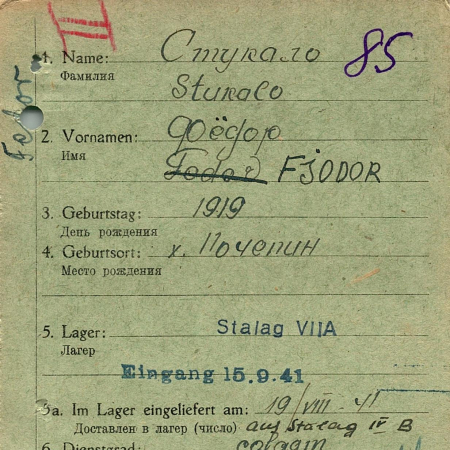 II
85
Fedor
1. Name: Стукало
Фамилия
Stukalo
2. Vornamen: Фёдор
Имя
Fedor FJODOR
3. Geburtstag: 1919
День рождения
4. Geburtsort: х. Почепин
Место рождения
5. Lager: Stalag VIIA
Лагер
Eingang 15.9.41
5a. Im Lager eingeliefert am: 19/VIII-41
Доставлен в лагер (число) aus Stalag IV B
6. Dienstgrad: